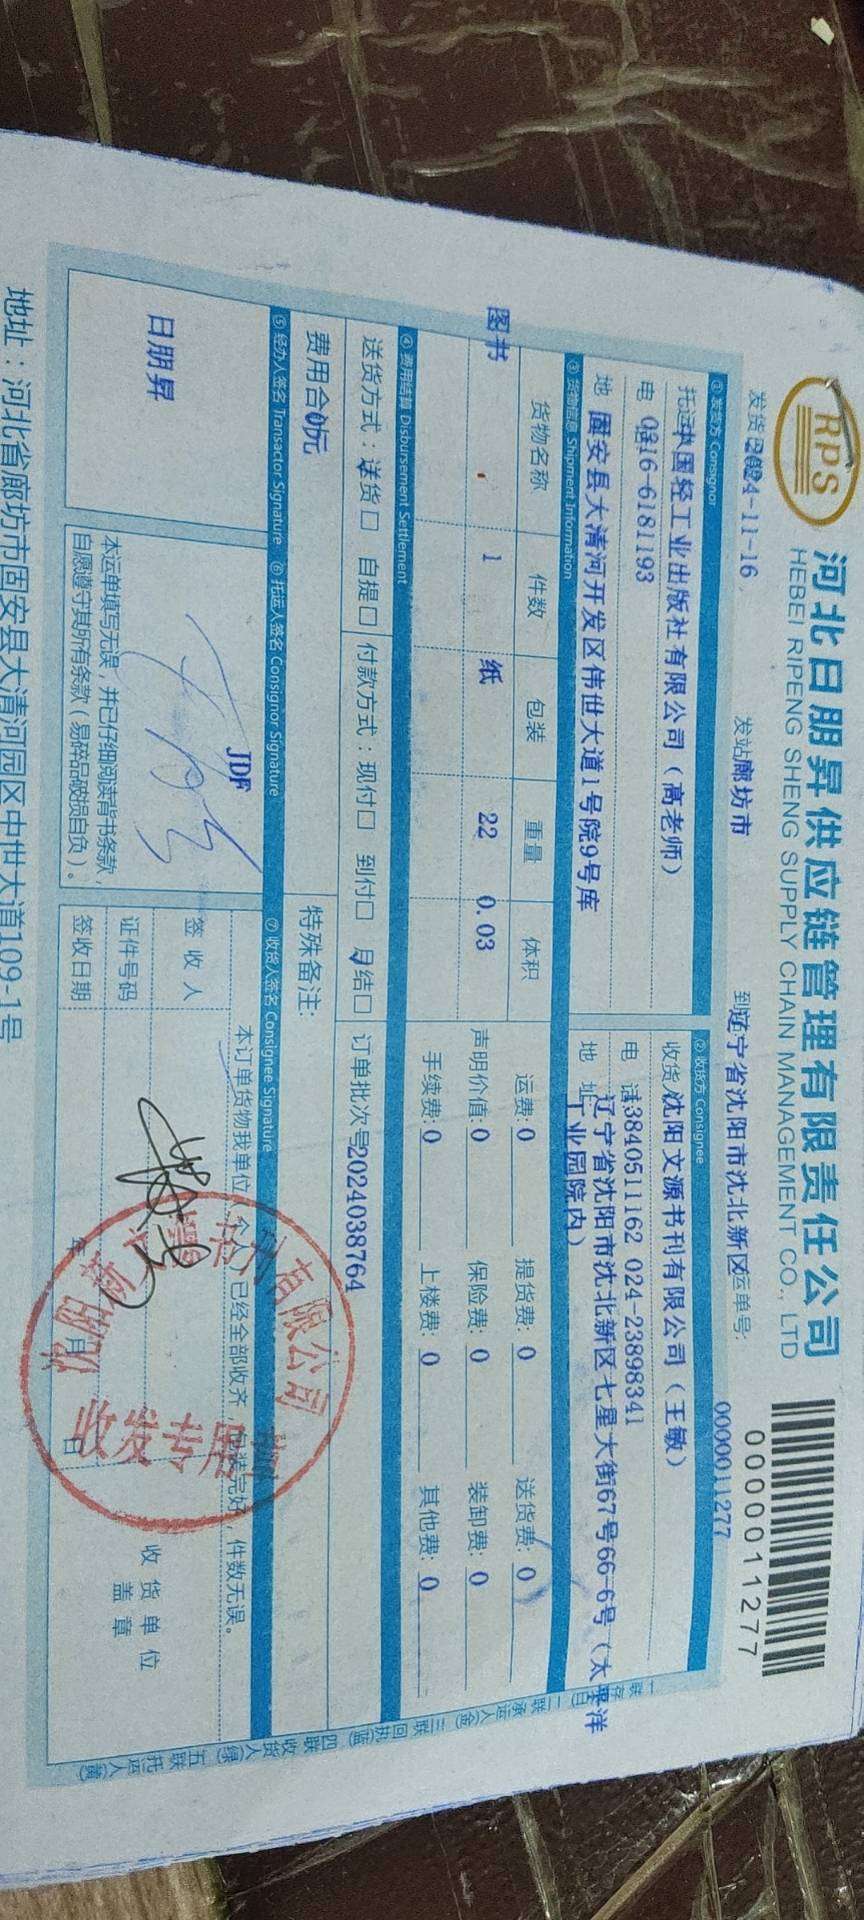 RPS
河北日朋昇供应链管理有限责任公司
HEBEI RIPENG SHENG SUPPLY CHAIN MANAGEMENT CO., LTD
0000011277
发货 2024-11-16 发站 廊坊市 到 辽宁省沈阳市沈北新区 运单号: 0000011277
① 发货方 Consignor
托运 中国轻工业出版社有限公司（高老师）
电 0316-6181193
地 固安县大清河开发区伟世大道1号院9号库
② 收货方 Consignee
收货 沈阳文源书刊有限公司（王敏）
电 话 13840511162 024-23898341
地 址 辽宁省沈阳市沈北新区七星大街67号66-6号（太平洋
工业园院内）
③ 货物信息 Shipment Information
货物名称 件数 包装 重量 体积
图书 1 纸 22 0.03
运费: 0 提货费: 0 送货费: 0
声明价值: 0 保险费: 0 装卸费: 0
手续费: 0 上楼费: 0 其他费: 0
④ 费用结算 Disbursement Settlement
送货方式：送货□ 自提□ 付款方式：现付□ 到付□ 月结□ 订单批次号 2024038764
费用合 0元 特殊备注:
⑤ 经办人签名 Transactor Signature
日朋昇
⑥ 托运人签名 Consignor Signature
JDF
本运单填写无误，并已仔细阅读背书条款，
自愿遵守其所有条款（易碎品破损自负）。
⑦ 收货人签名 Consignee Signature
本订单货物我单位（个人）已经全部收齐，包装完好，件数无误。
签 收 人
证件号码
签收日期 年 月 日
收货单位
盖 章
有限公司
收发专用
一联存 二联承运人 三联回执 四联收货人 五联托运人
地址：河北省廊坊市固安县大清河园区中世大道109-1号